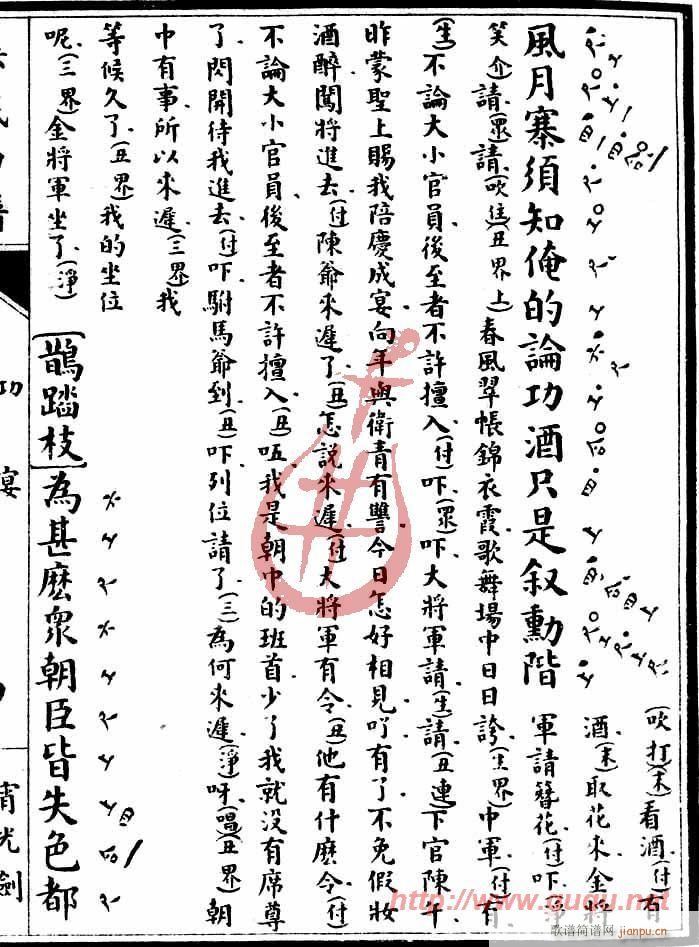 風月寨須知俺的論功酒只是叙勳階
(吹打)(末)看酒(付)有
酒(末)取花來金將
軍請簪花(付)吓
笑介)請(衆)請(吹住)(丑界上)春風翠帳錦衣霞歌舞場中日日誇(生界)中軍(付)有
(生)不論大小官員後至者不許擅入(付)吓(衆)吓大將軍請(生)請(丑連)下官陳午
昨蒙聖上賜我陪慶成宴向年與衛青有讐今日怎好相見吖有了不免假妝
酒醉闖將進去(付)陳爺來遲了(丑)怎說來遲(付)大將軍有令(丑)他有什麽令(付)
不論大小官員後至者不許擅入(丑)呸我是朝中的班首少了我就没有席尊
了閃開待我進去(付)吓駙馬爺到(丑)吓列位請了(三)為何來遲(淨)呀(唱)(丑界)朝
中有事所以來遲(三界)我
等候久了(丑界)我的坐位
呢(三界)金將軍坐了(淨)
[鵲踏枝]為甚麽衆朝臣皆失色都
功
宴
宵光劍
http://www.ququ.net
歌谱简谱网
jianpu.cn